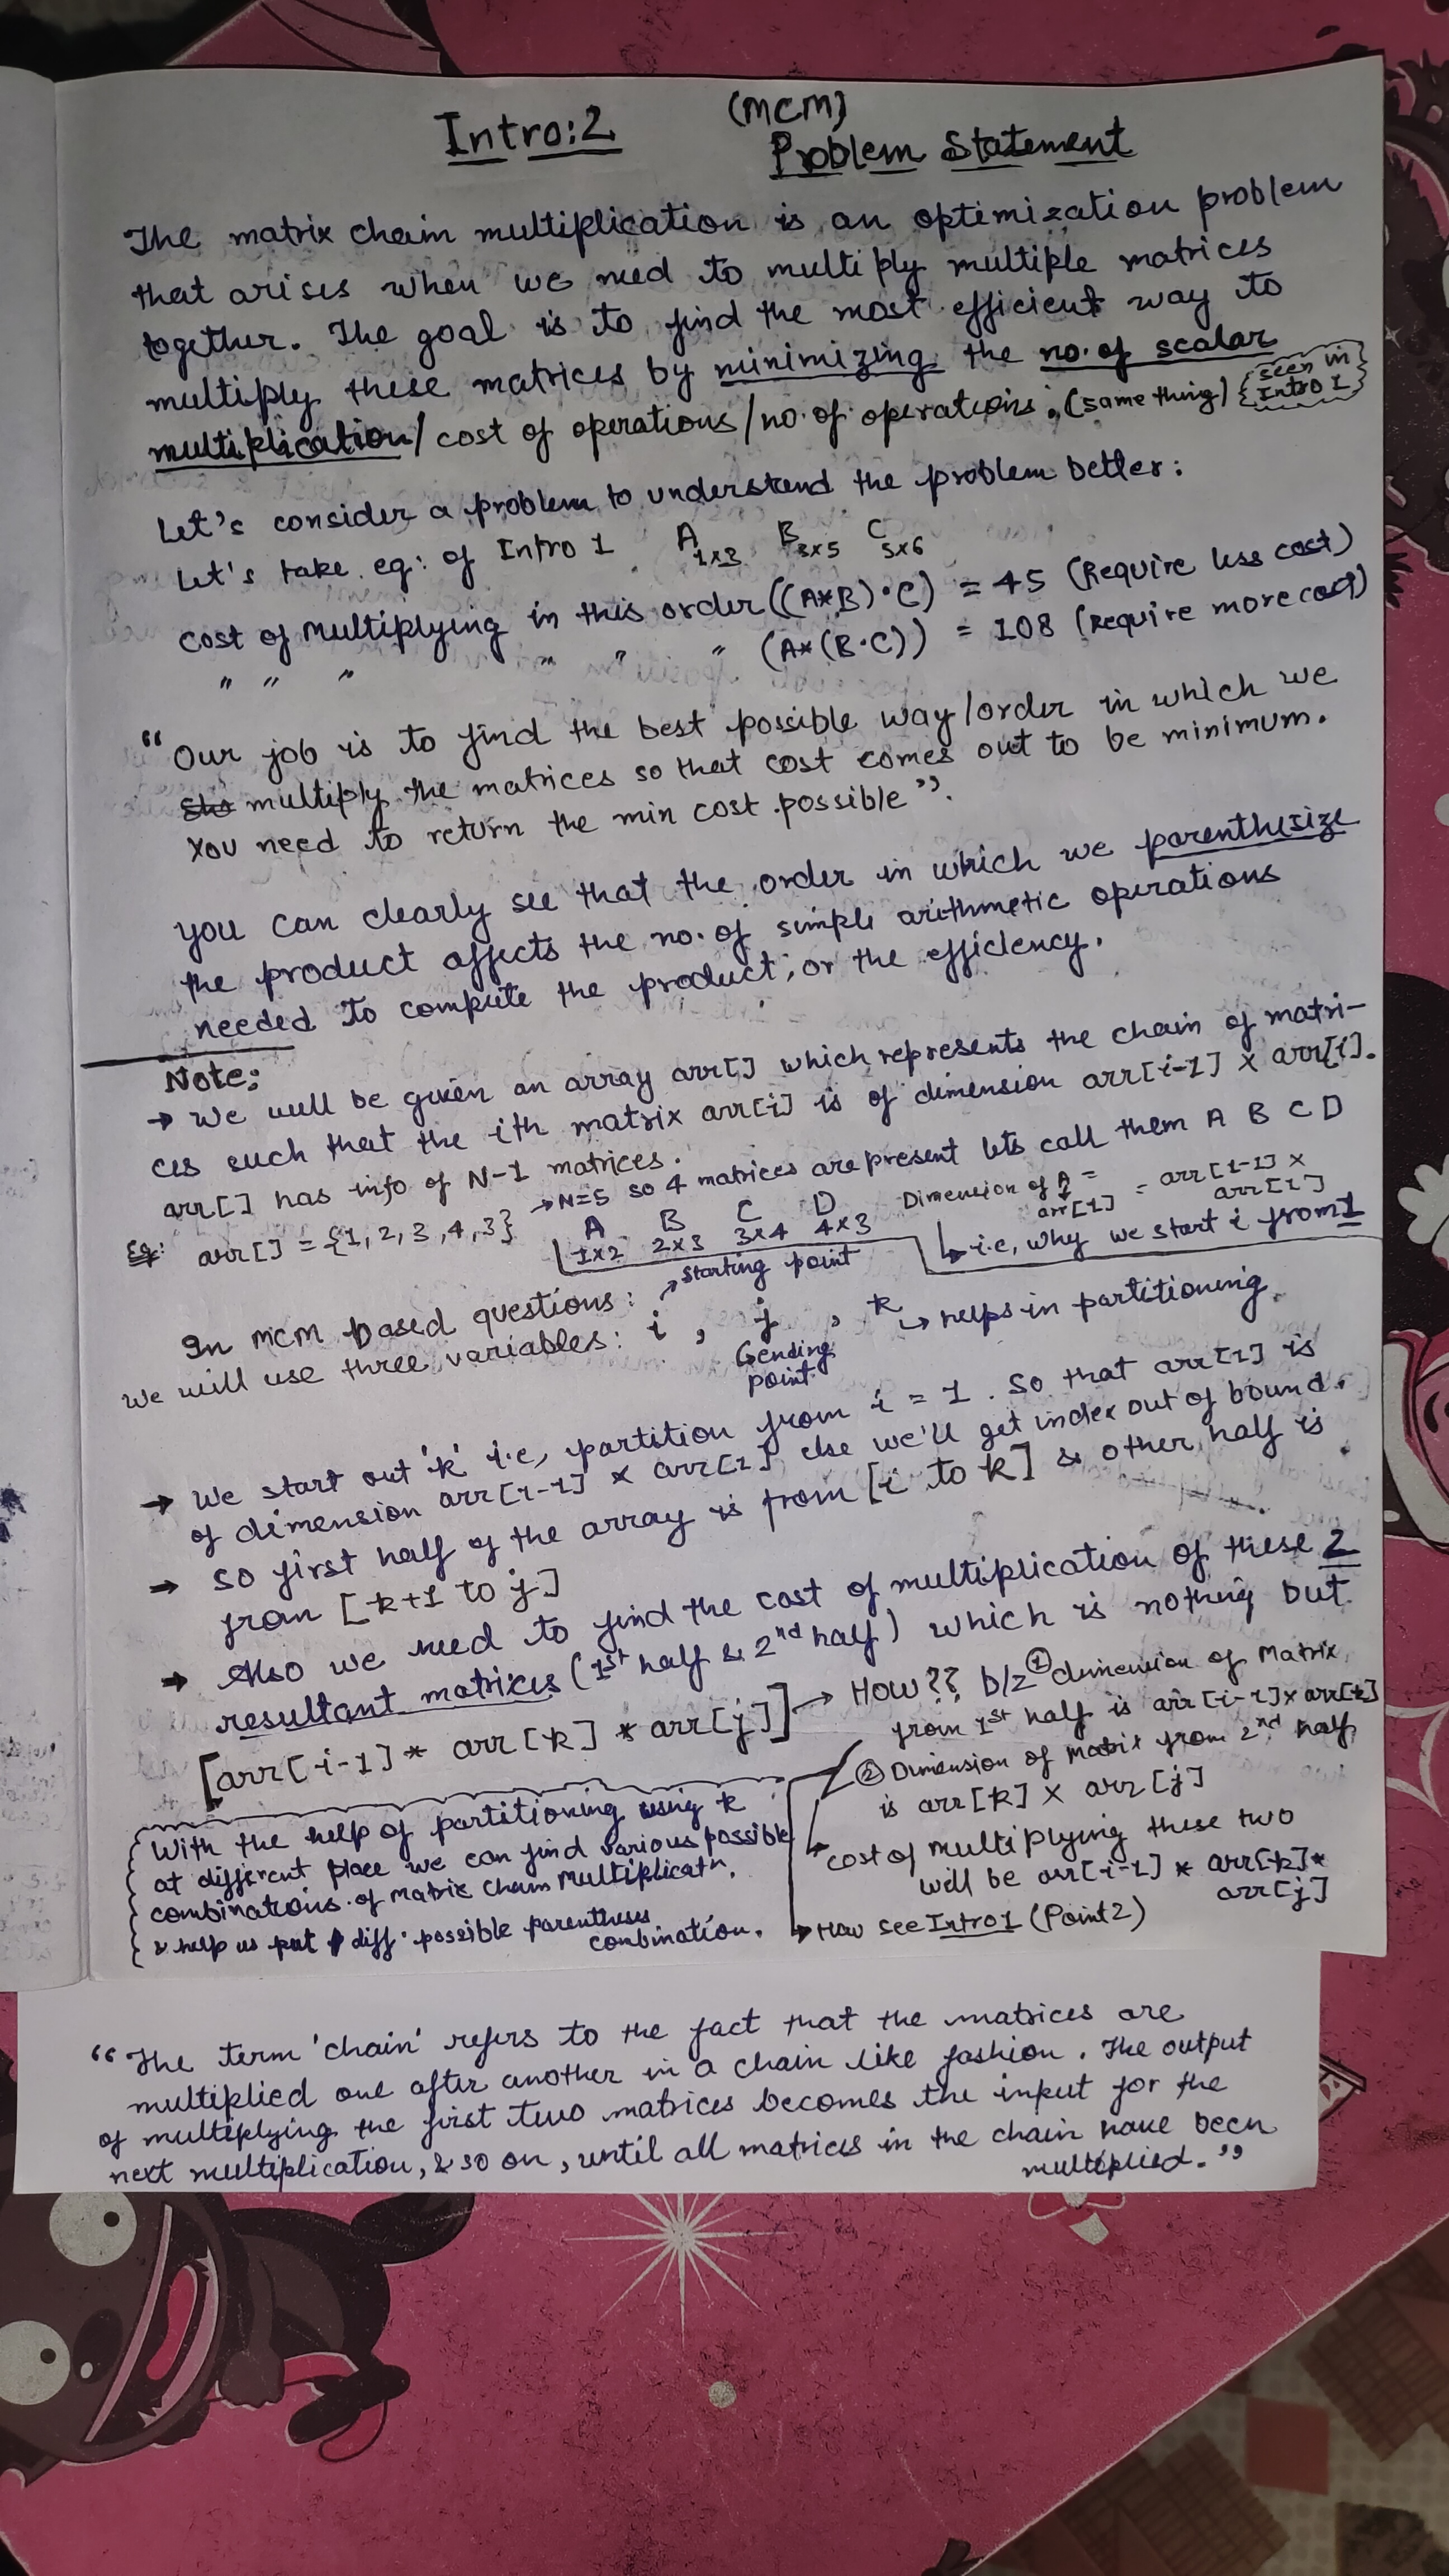 Intro:2 (MCM)
Problem Statement
The matrix chain multiplication is an optimization problem
that arises when we need to multiply multiple matrices
together. The goal is to find the most efficient way to
multiply these matrices by minimizing the no. of scalar
multiplication/ cost of operations/no. of operations. (same thing) {seen in
Intro 1}
Let's consider a problem to understand the problem better:
Let's take eg: of Intro 1 A1x3 B3x5 C5x6
cost of multiplying in this order ((A*B)·C) = 45 (Require less cost)
" " " " " " (A*(B·C)) = 108 (Require more cost)
"Our job is to find the best possible way/order in which we
multiply the matrices so that cost comes out to be minimum.
You need to return the min cost possible".
You can clearly see that the order in which we parenthesize
the product affects the no. of simple arithmetic operations
needed to compute the product, or the efficiency.
Note:
→ We will be given an array arr[] which represents the chain of matri-
ces such that the ith matrix arr[i] is of dimension arr[i-1] x arr[i].
arr[] has info of N-1 matrices.
→N=5 so 4 matrices are present lets call them A B C D
Eg: arr[] = {1, 2, 3, 4, 3}
A B C D
1x2 2x3 3x4 4x3
Dimension of A =
arr[1] = arr[1-1] x
arr[1]
↳ i.e, why we start i from 1
In MCM based questions: →starting point
we will use three variables: i , j , k ↳ helps in partitioning
↳ending
point
→ We start out 'k' i.e, partition from i = 1. So that arr[1] is
of dimension arr[1-1] x arr[1] else we'll get index out of bound.
→ So first half of the array is from [i to k] & other half is
from [k+1 to j]
→ Also we need to find the cost of multiplication of these 2
resultant matrices (1st half & 2nd half) which is nothing but
[arr[i-1] * arr[k] * arr[j]] → How?? b/z ① dimension of Matrix
from 1st half is arr[i-1] x arr[k]
② Dimension of matrix from 2nd half
is arr[k] x arr[j]
↳ cost of multiplying these two
will be arr[i-1] * arr[k] *
arr[j]
↳ How see Intro 1 (Point 2)
With the help of partitioning using k
at different place we can find various possible
combinations of Matrix Chain Multiplicatn.
& help us put diff. possible parentheses
combination.
"The term 'chain' refers to the fact that the matrices are
multiplied one after another in a chain like fashion. The output
of multiplying the first two matrices becomes the input for the
next multiplication, & so on, until all matrices in the chain have been
multiplied."